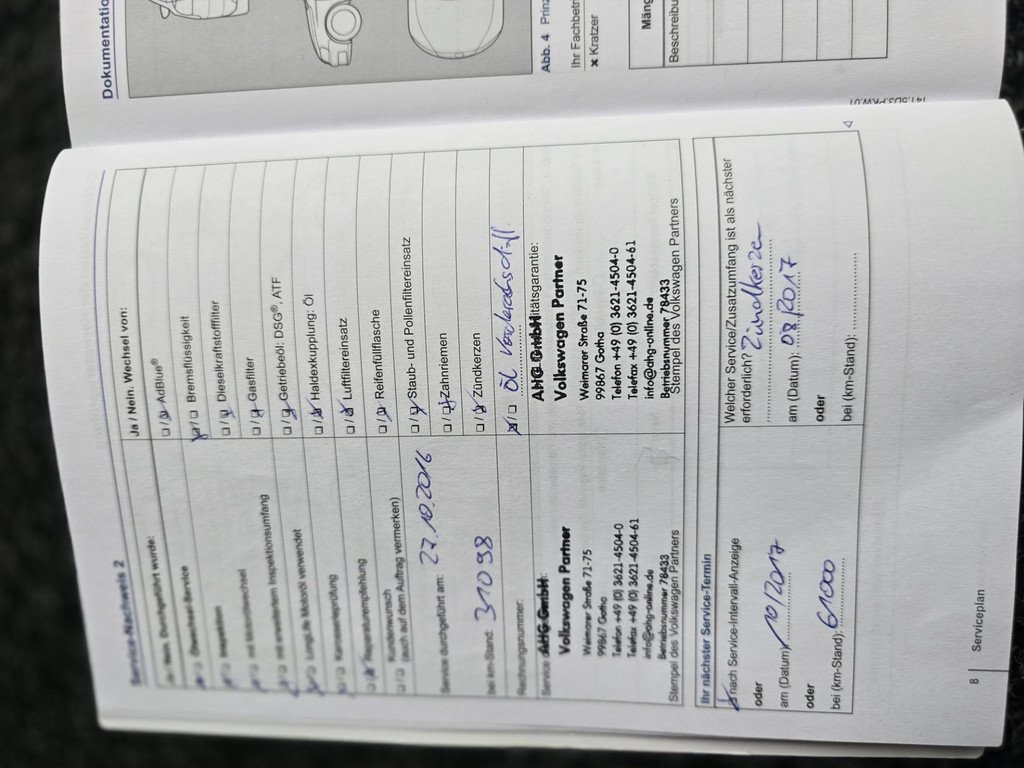 Dokumentatio
Abb. 4 Prinz
Ihr Fachbetr
× Kratzer
Mäng
Beschreibu
Service-Nachweis 2
Ja / Nein. Durchgeführt wurde:
Ölwechsel-Service
Inspektion
mit Motorölwechsel
mit erweitertem Inspektionsumfang
LongLife Motoröl verwendet
Karosserieprüfung
Reparaturempfehlung
Kundenwunsch
(auch auf dem Auftrag vermerken)
Service durchgeführt am: 27.10.2016
bei km-Stand: 31098
Rechnungsnummer:
Service
AHG GmbH
Volkswagen Partner
Weimarer Straße 71-75
99867 Gotha
Telefon +49 (0) 3621-4504-0
Telefax +49 (0) 3621-4504-61
info@ahg-online.de
Betriebsnummer 78433
Stempel des Volkswagen Partners
Ja / Nein. Wechsel von:
AdBlue®
Bremsflüssigkeit
Dieselkraftstofffilter
Gasfilter
Getriebeöl: DSG®, ATF
Haldexkupplung: Öl
Luftfiltereinsatz
Reifenfüllflasche
Staub- und Pollenfiltereinsatz
Zahnriemen
Zündkerzen
Öl Vorderachsdiff.
itätsgarantie:
AHG GmbH
Volkswagen Partner
Weimarer Straße 71-75
99867 Gotha
Telefon +49 (0) 3621-4504-0
Telefax +49 (0) 3621-4504-61
info@ahg-online.de
Betriebsnummer 78433
Stempel des Volkswagen Partners
Ihr nächster Service-Termin
nach Service-Intervall-Anzeige
oder
am (Datum): 10/2017
oder
bei (km-Stand): 61000
Welcher Service/Zusatzumfang ist als nächster
erforderlich? Zündkerze
am (Datum): 08/2017
oder
bei (km-Stand):
8
Serviceplan